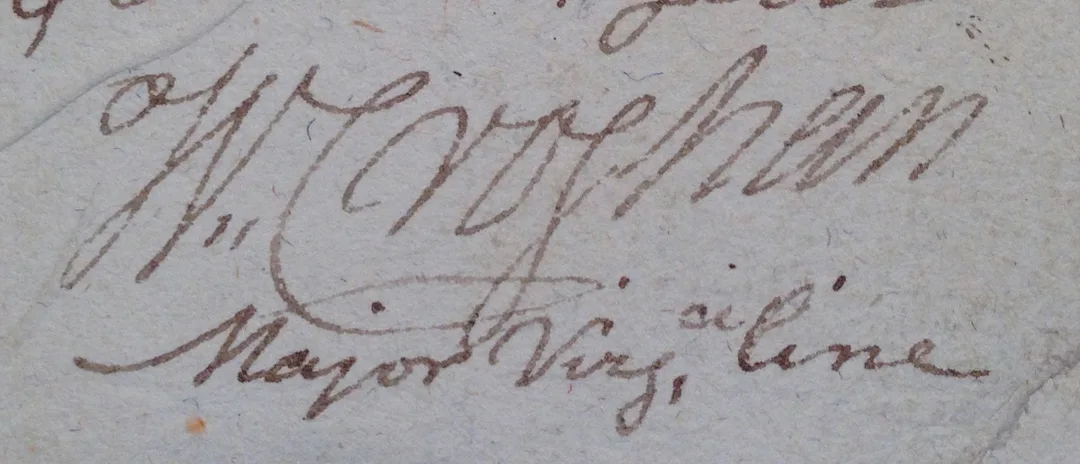 W,, Croghan
Major Virg,ia line